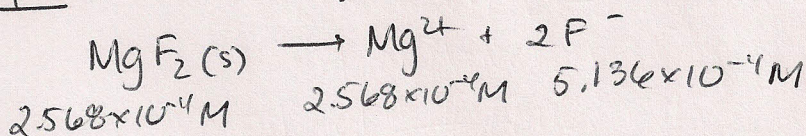 MgF₂ (s) ⟶ Mg²⁺ + 2F⁻
2.568×10⁻⁴M 2.568×10⁻⁴M 5.136×10⁻⁴M